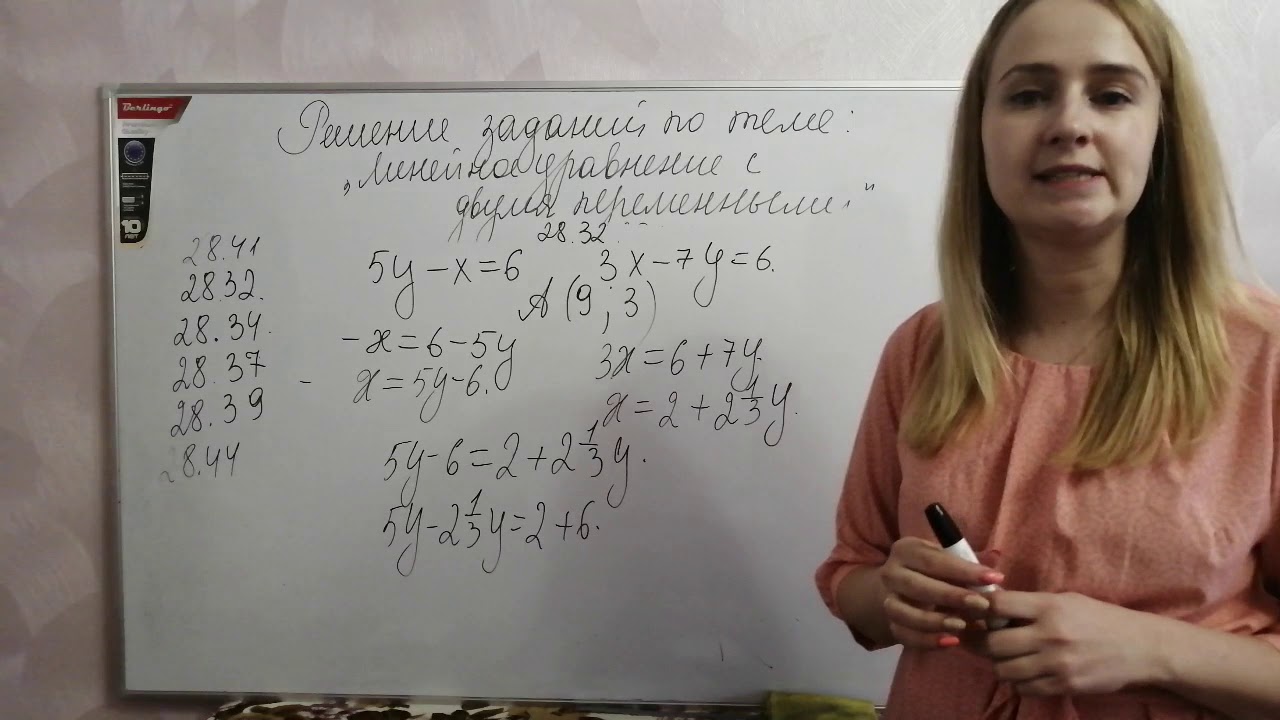 Berlingo
10 лет
Решение заданий по теме:
„Линейное уравнение с
двумя переменными"
28.32
28.41
28.32.
28.34.
28.37
28.39
28.44
5y - x = 6
3x - 7y = 6.
A (9 ; 3)
-x = 6 - 5y
3x = 6 + 7y.
- x = 5y - 6.
x = 2 + 2 1/3 y.
5y - 6 = 2 + 2 1/3 y.
5y - 2 1/3 y = 2 + 6.